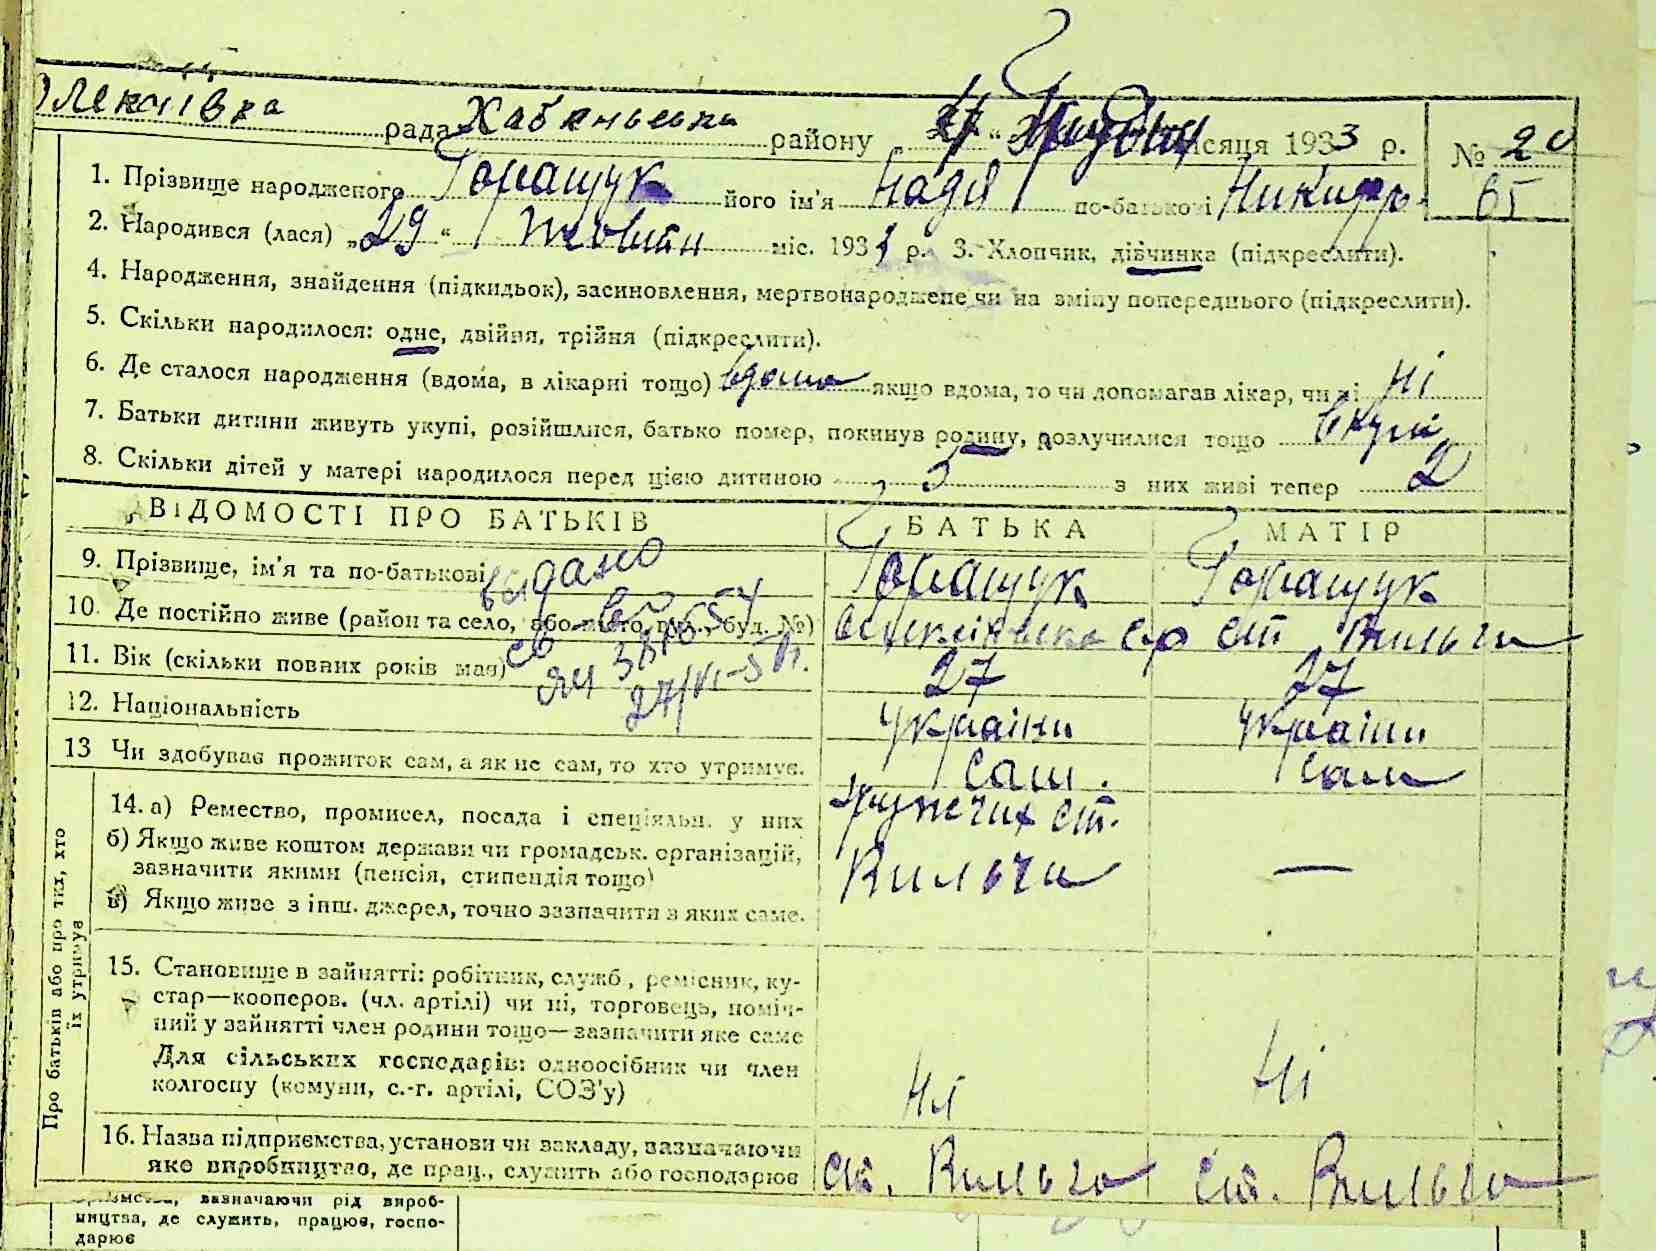 рада Хабенського району „ “ місяця 1933 р. № 20
65
1. Прізвище народженого Горащук його ім'я Надія по-батькові Никифор.
2. Народився (лася) „29“ Жовтн міс. 193 р. 3. Хлопчик, дівчинка (підкреслити).
4. Народження, знайдення (підкидьок), засиновлення, мертвонароджене чи на зміну попереднього (підкреслити).
5. Скільки народилося: одне, двійня, трійня (підкреслити).
6. Де сталося народження (вдома, в лікарні тощо) вдома якщо вдома, то чи допомагав лікар, чи ні ні
7. Батьки дитини живуть укупі, розійшлися, батько помер, покинув родину, розлучилися тощо вкупі
8. Скільки дітей у матері народилося перед цією дитиною 3 з них живі тепер 2
ВІДОМОСТІ ПРО БАТЬКІВ БАТЬКА МАТІР
9. Прізвище, ім'я та по-батькові Горащук Горащук
видано
10. Де постійно живе (район та село, або місто, вул., буд. №) ст Вильча
11. Вік (скільки повних років має) 27 27
12. Національність україн україн
13 Чи здобуває прожиток сам, а як не сам, то хто утримує. сам. сам
Про батьків або про тих, хто їх утримує
14. а) Ремество, промисел, посада і спеціяльн. у них ст.
б) Якщо живе коштом держави чи громадськ. організацій, Вильча —
зазначити якими (пенсія, стипендія тощо)
в) Якщо живе з інш. джерел, точно зазначити з яких саме.
15. Становище в зайнятті: робітник, служб, ремісник, ку-
стар—кооперов. (чл. артілі) чи ні, торговець, поміч-
ний у зайнятті член родини тощо—зазначити яке саме
Для сільських господарів: одноосібник чи член
колгоспу (комуни, с.-г. артілі, СОЗ'у) ні ні
16. Назва підприємства, установи чи закладу, зазначаючи
яке виробництво, де прац., служить або господарює ст. Вильча ст. Вильча
зазначаючи рід вироб-
ництва, де служить, працює, госпо-
дарює